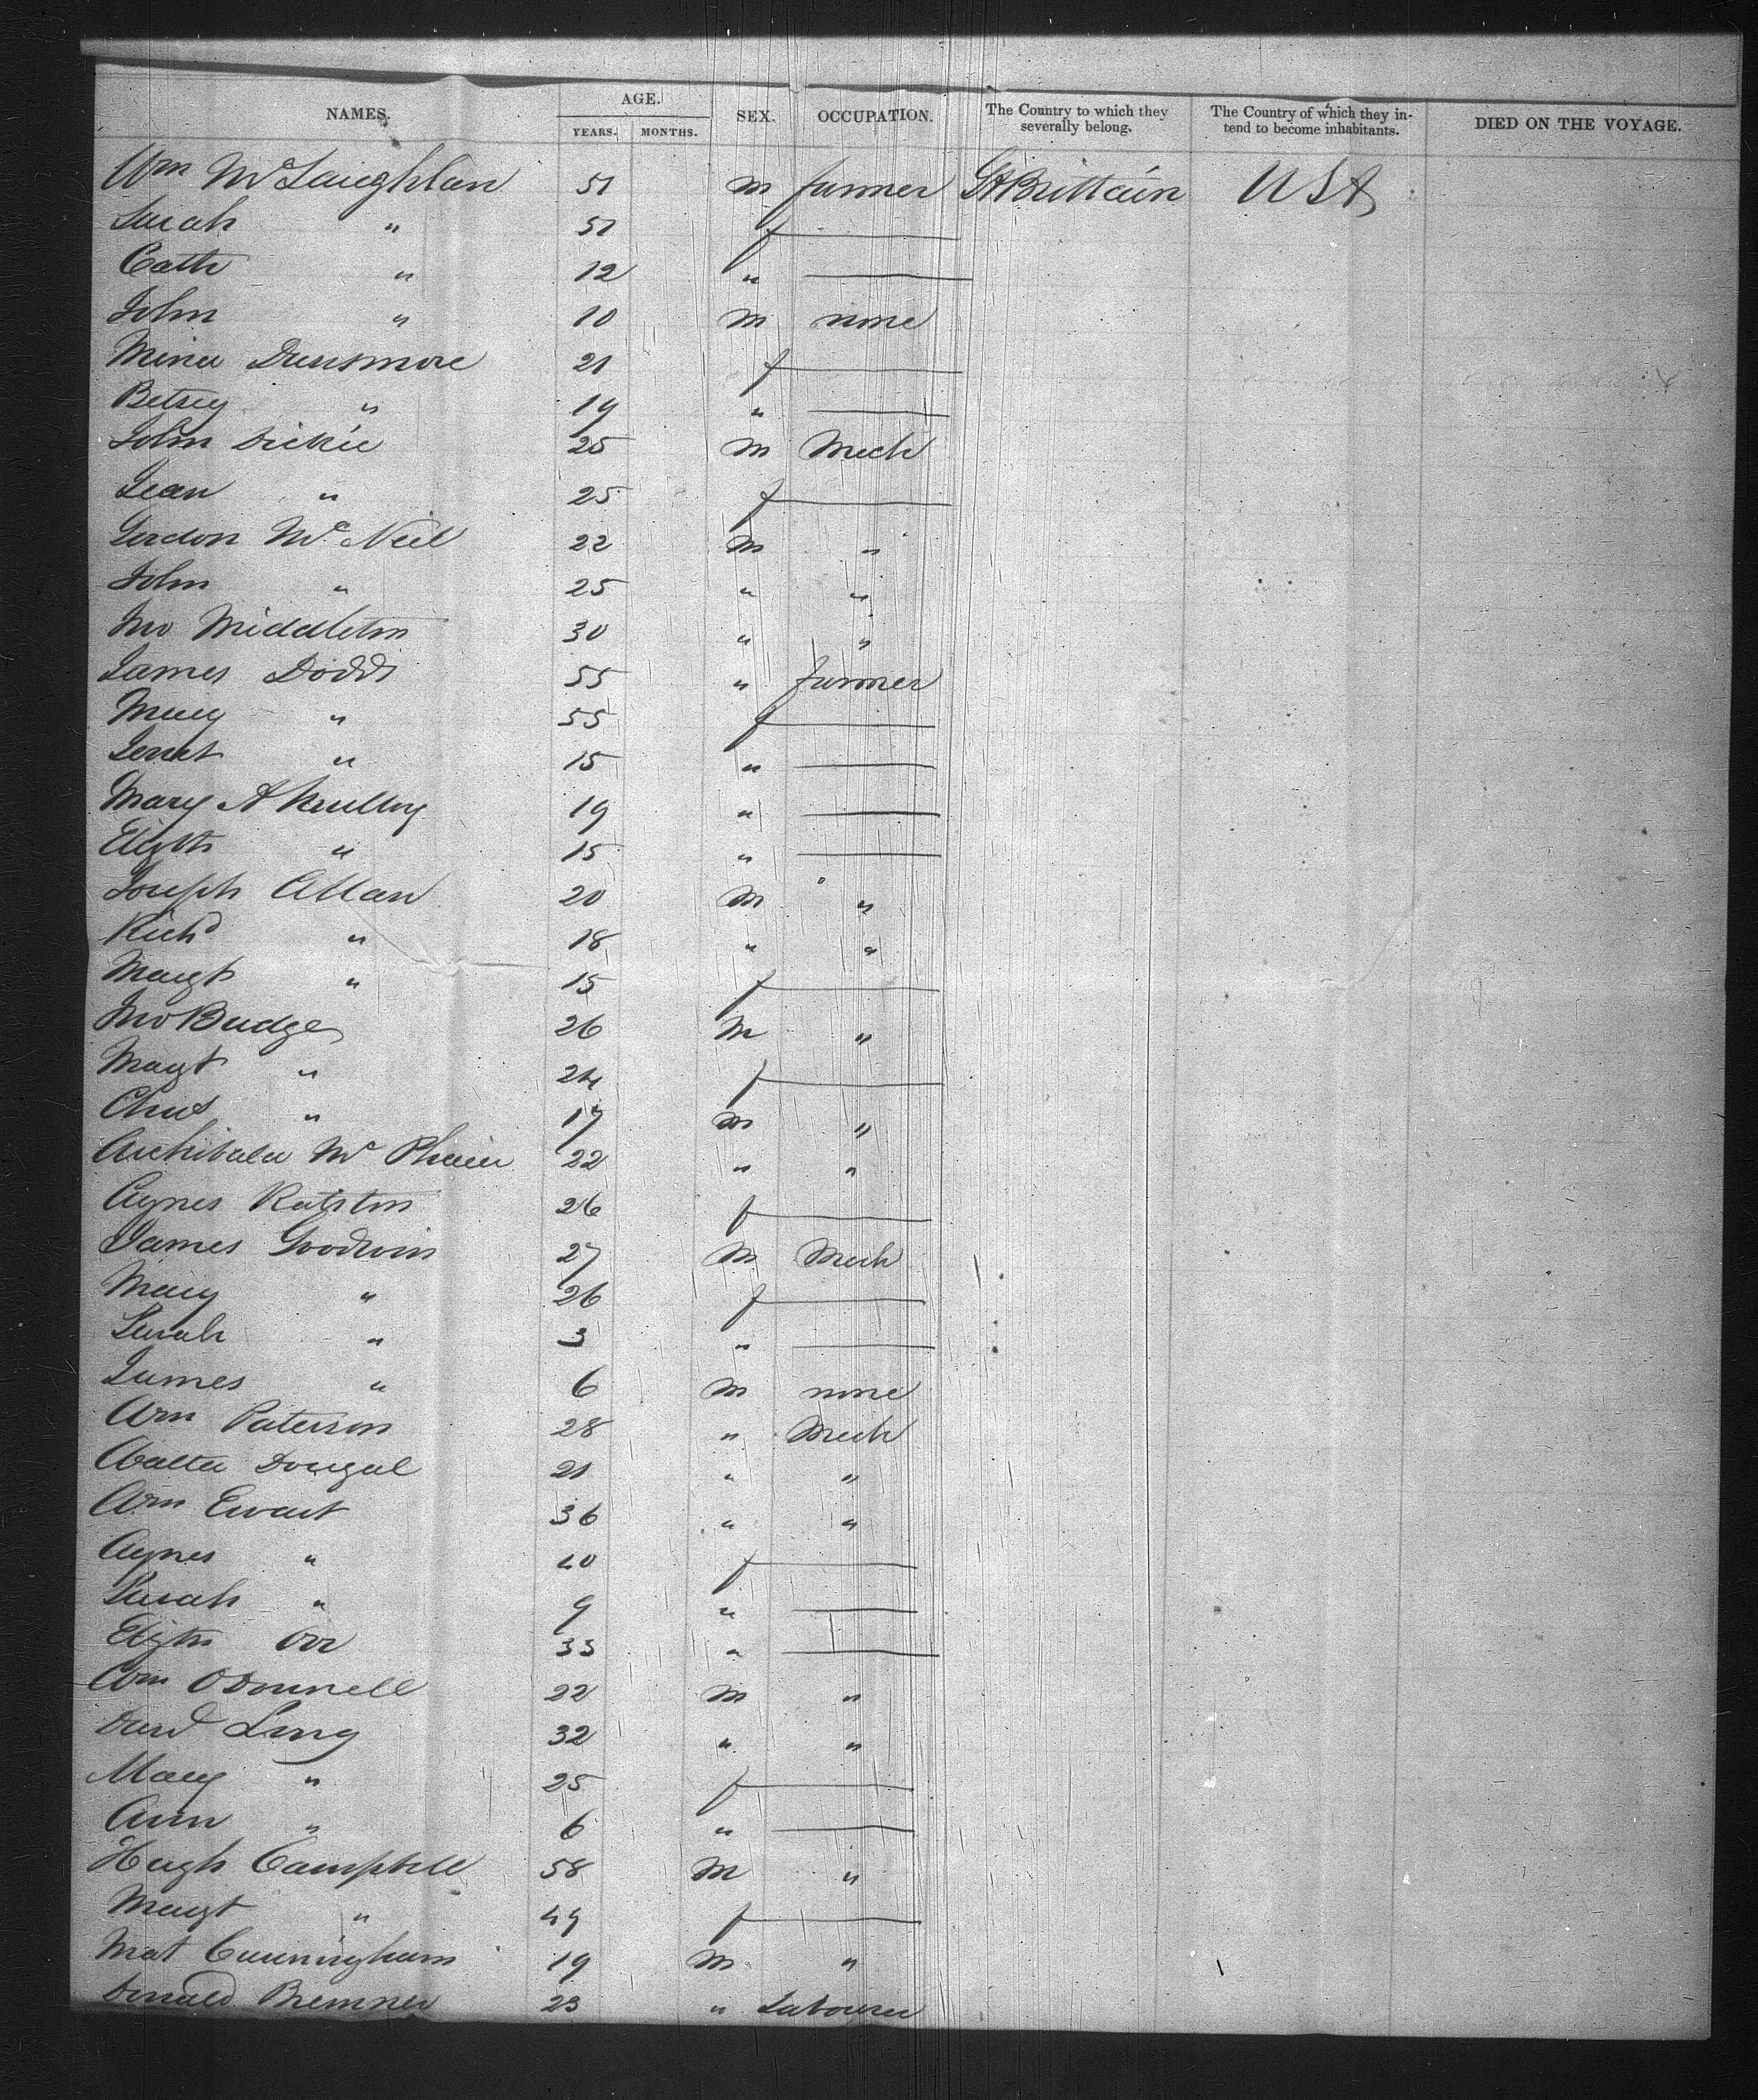 NAMES. AGE. SEX. OCCUPATION. The Country to which they severally belong. The Country of which they intend to become inhabitants. DIED ON THE VOYAGE.
YEARS. MONTHS.
Wm McLaughlan 51 m farmer Gt Brittain USA
Sarah " 51 f
Cath " 12 "
John " 10 m none
Mina Dunsmore 21 f
Betsey " 19 "
John Dickie 25 m Mech
Jean " 25 f
Gordon Mc Neil 22 m "
John " 25 " "
Jno Middleton 30 " "
James Dodds 55 " farmer
Mary " 55 f
Janet " 15 "
Mary A 19 "
Elizth " 15 "
Joseph Allan 20 m "
Richd " 18 " "
Margt " 15 f
Jno Budge 26 m "
Margt " 24 f
Chas " 17 m "
Archibald Mc 22 " "
Agnes Ralston 26 f
James Goodwin 27 m Mech
Mary " 26 f
Sarah " 3 "
James " 6 m none
Wm Paterson 28 " Mech
Walter Dougal 21 " "
Wm Ewart 36 " "
Agnes " 40 f
Sarah " 9 "
Elizth Orr 33 "
Wm O'Donnell 22 m "
David Long 32 " "
Mary " 25 f
Ann " 6 "
Hugh Campbell 58 m "
Margt " 49 f
Mat Cunningham 19 m "
Donald Bremner 23 " Labourer